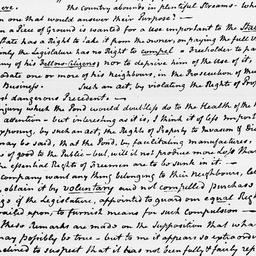 ere. The Country abounds in plentiful Streams - Wh
n one that would answer their Purpose? —
n a Piece of Ground is wanted for a Use important to the State
State has a Right to take it from the owner, on paying the full V
nly the Legislature has no Right to compel a Freeholder to pa
ny of his Fellow-Citizens nor to deprive him of the Use of it,
odate one or more of his neighbours, in the Prosecution of
Business. Such an Act, by violating the Rights of Prop
ost dangerous Precedents —
njury which the Pond would doubtless do to the Health of the
attention — but interesting as it is, I think it of less Import
by such an act, the Rights of Property to Invasion
may be said, that the Pond, by facilitating manufactures
of good to the Public — but, will it not produce more loss than
the essential Rights of Freemen are to be sunk in it. —
Company want any thing belonging to their Neighbours, le
obtain it by voluntary and not compelled purchase
of the Legislature, appointed to guard our equal Right
vailed upon, to furnish means for such Compulsion —
These remarks are made on the supposition that what
may possibly be true — but to me it appears so extraord
clined to suspect that it has not been fully & fairly rep